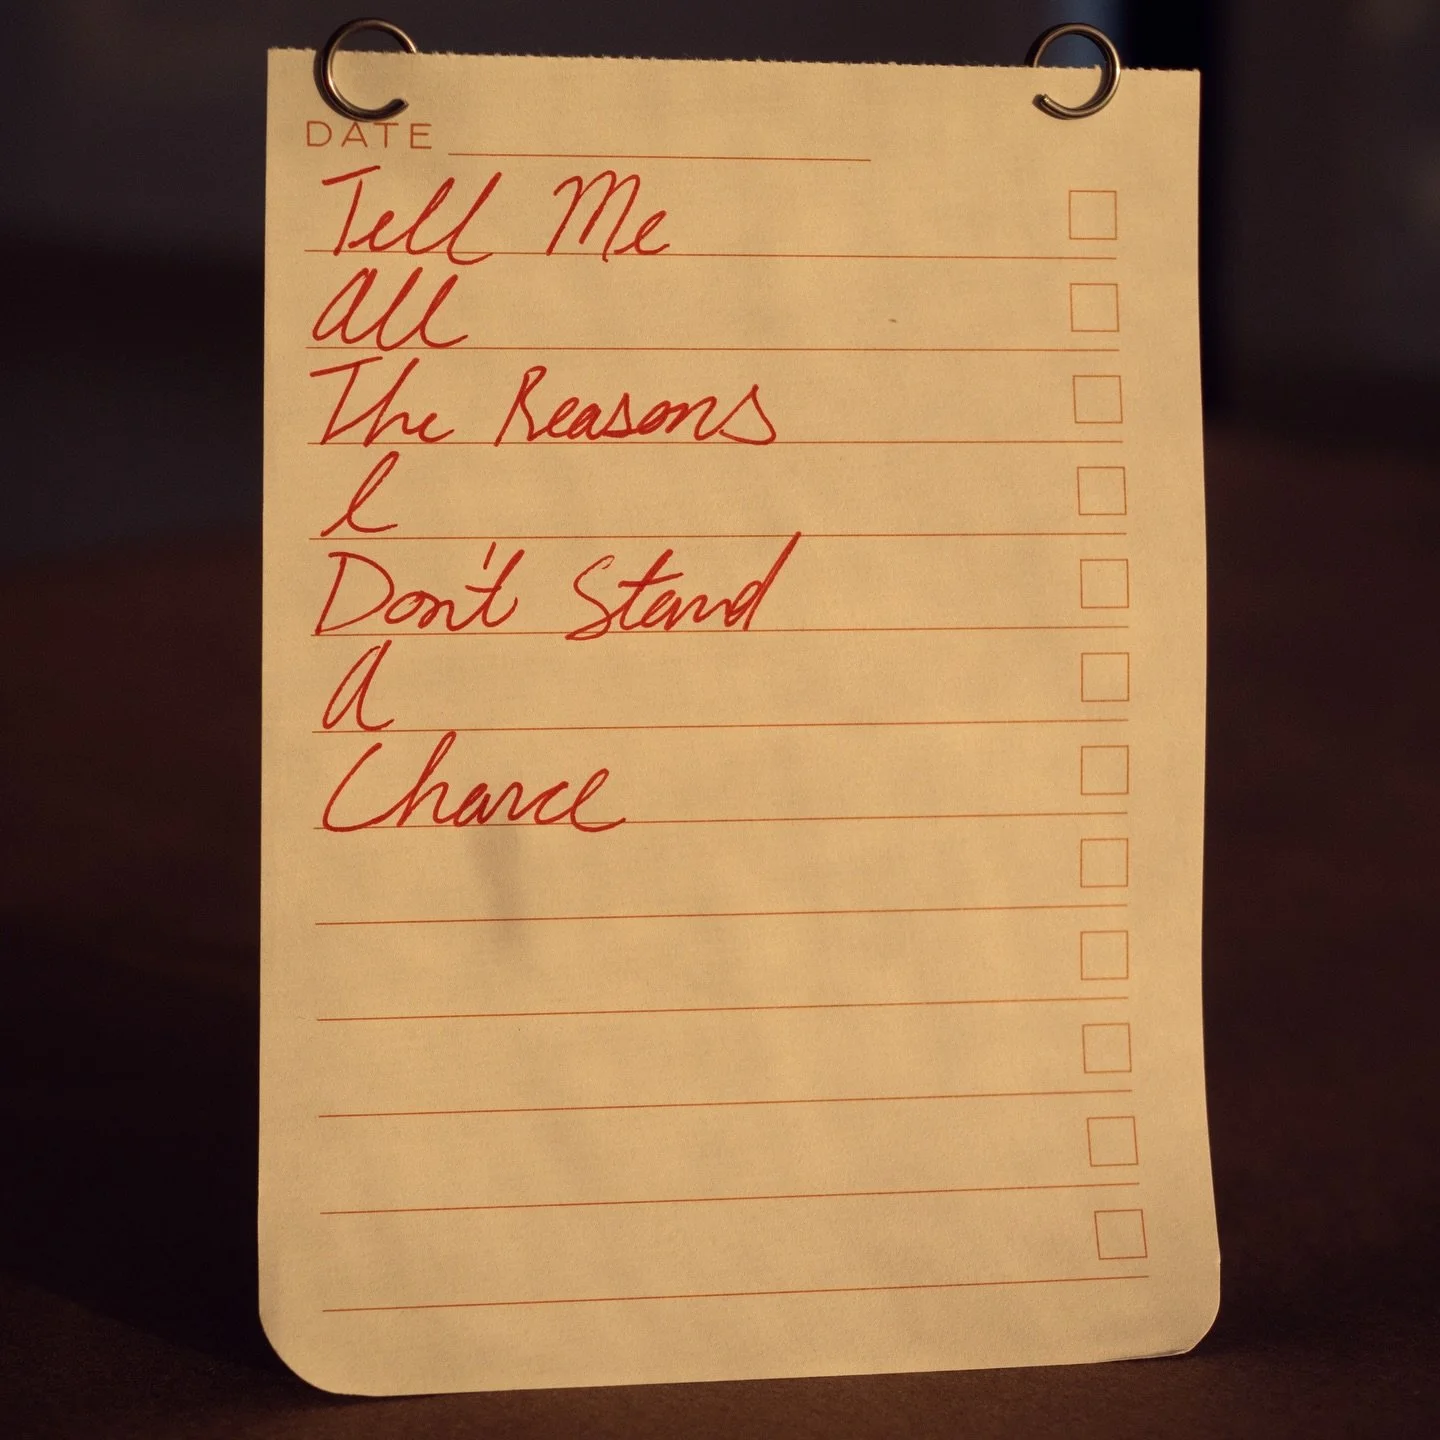 DATE
Tell Me
All
The Reasons
I
Don't Stand
A
Chance